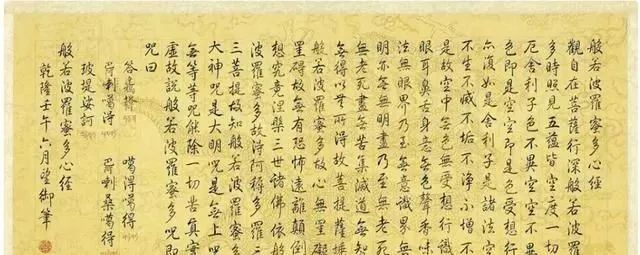 般若波羅蜜多心經
觀自在菩薩行深般若波羅
多時照見五蘊皆空度一切
厄舍利子色不異空空不異
色即是空空即是色受想行
亦復如是舍利子是諸法空
不生不滅不垢不淨不增不
是故空中無色無受想行識
眼耳鼻舌身意無色聲香味
法無眼界乃至無意識界無
明亦無無明盡乃至無老死
無老死盡無苦集滅道無知
無得以無所得故菩提薩埵
般若波羅蜜多故心無罣礙
罣礙故無有恐怖遠離顛倒
想究竟涅槃三世諸佛依般
波羅蜜多故得阿耨多羅三
三菩提故知般若波羅蜜多
大神咒是大明咒是無上咒
無等等咒能除一切苦真實
虛故說般若波羅蜜多咒即
咒曰
噶得噶得
喇噶得 喇桑噶得
玻提娑訶
般若波羅蜜多心經
乾隆壬午六月望御筆